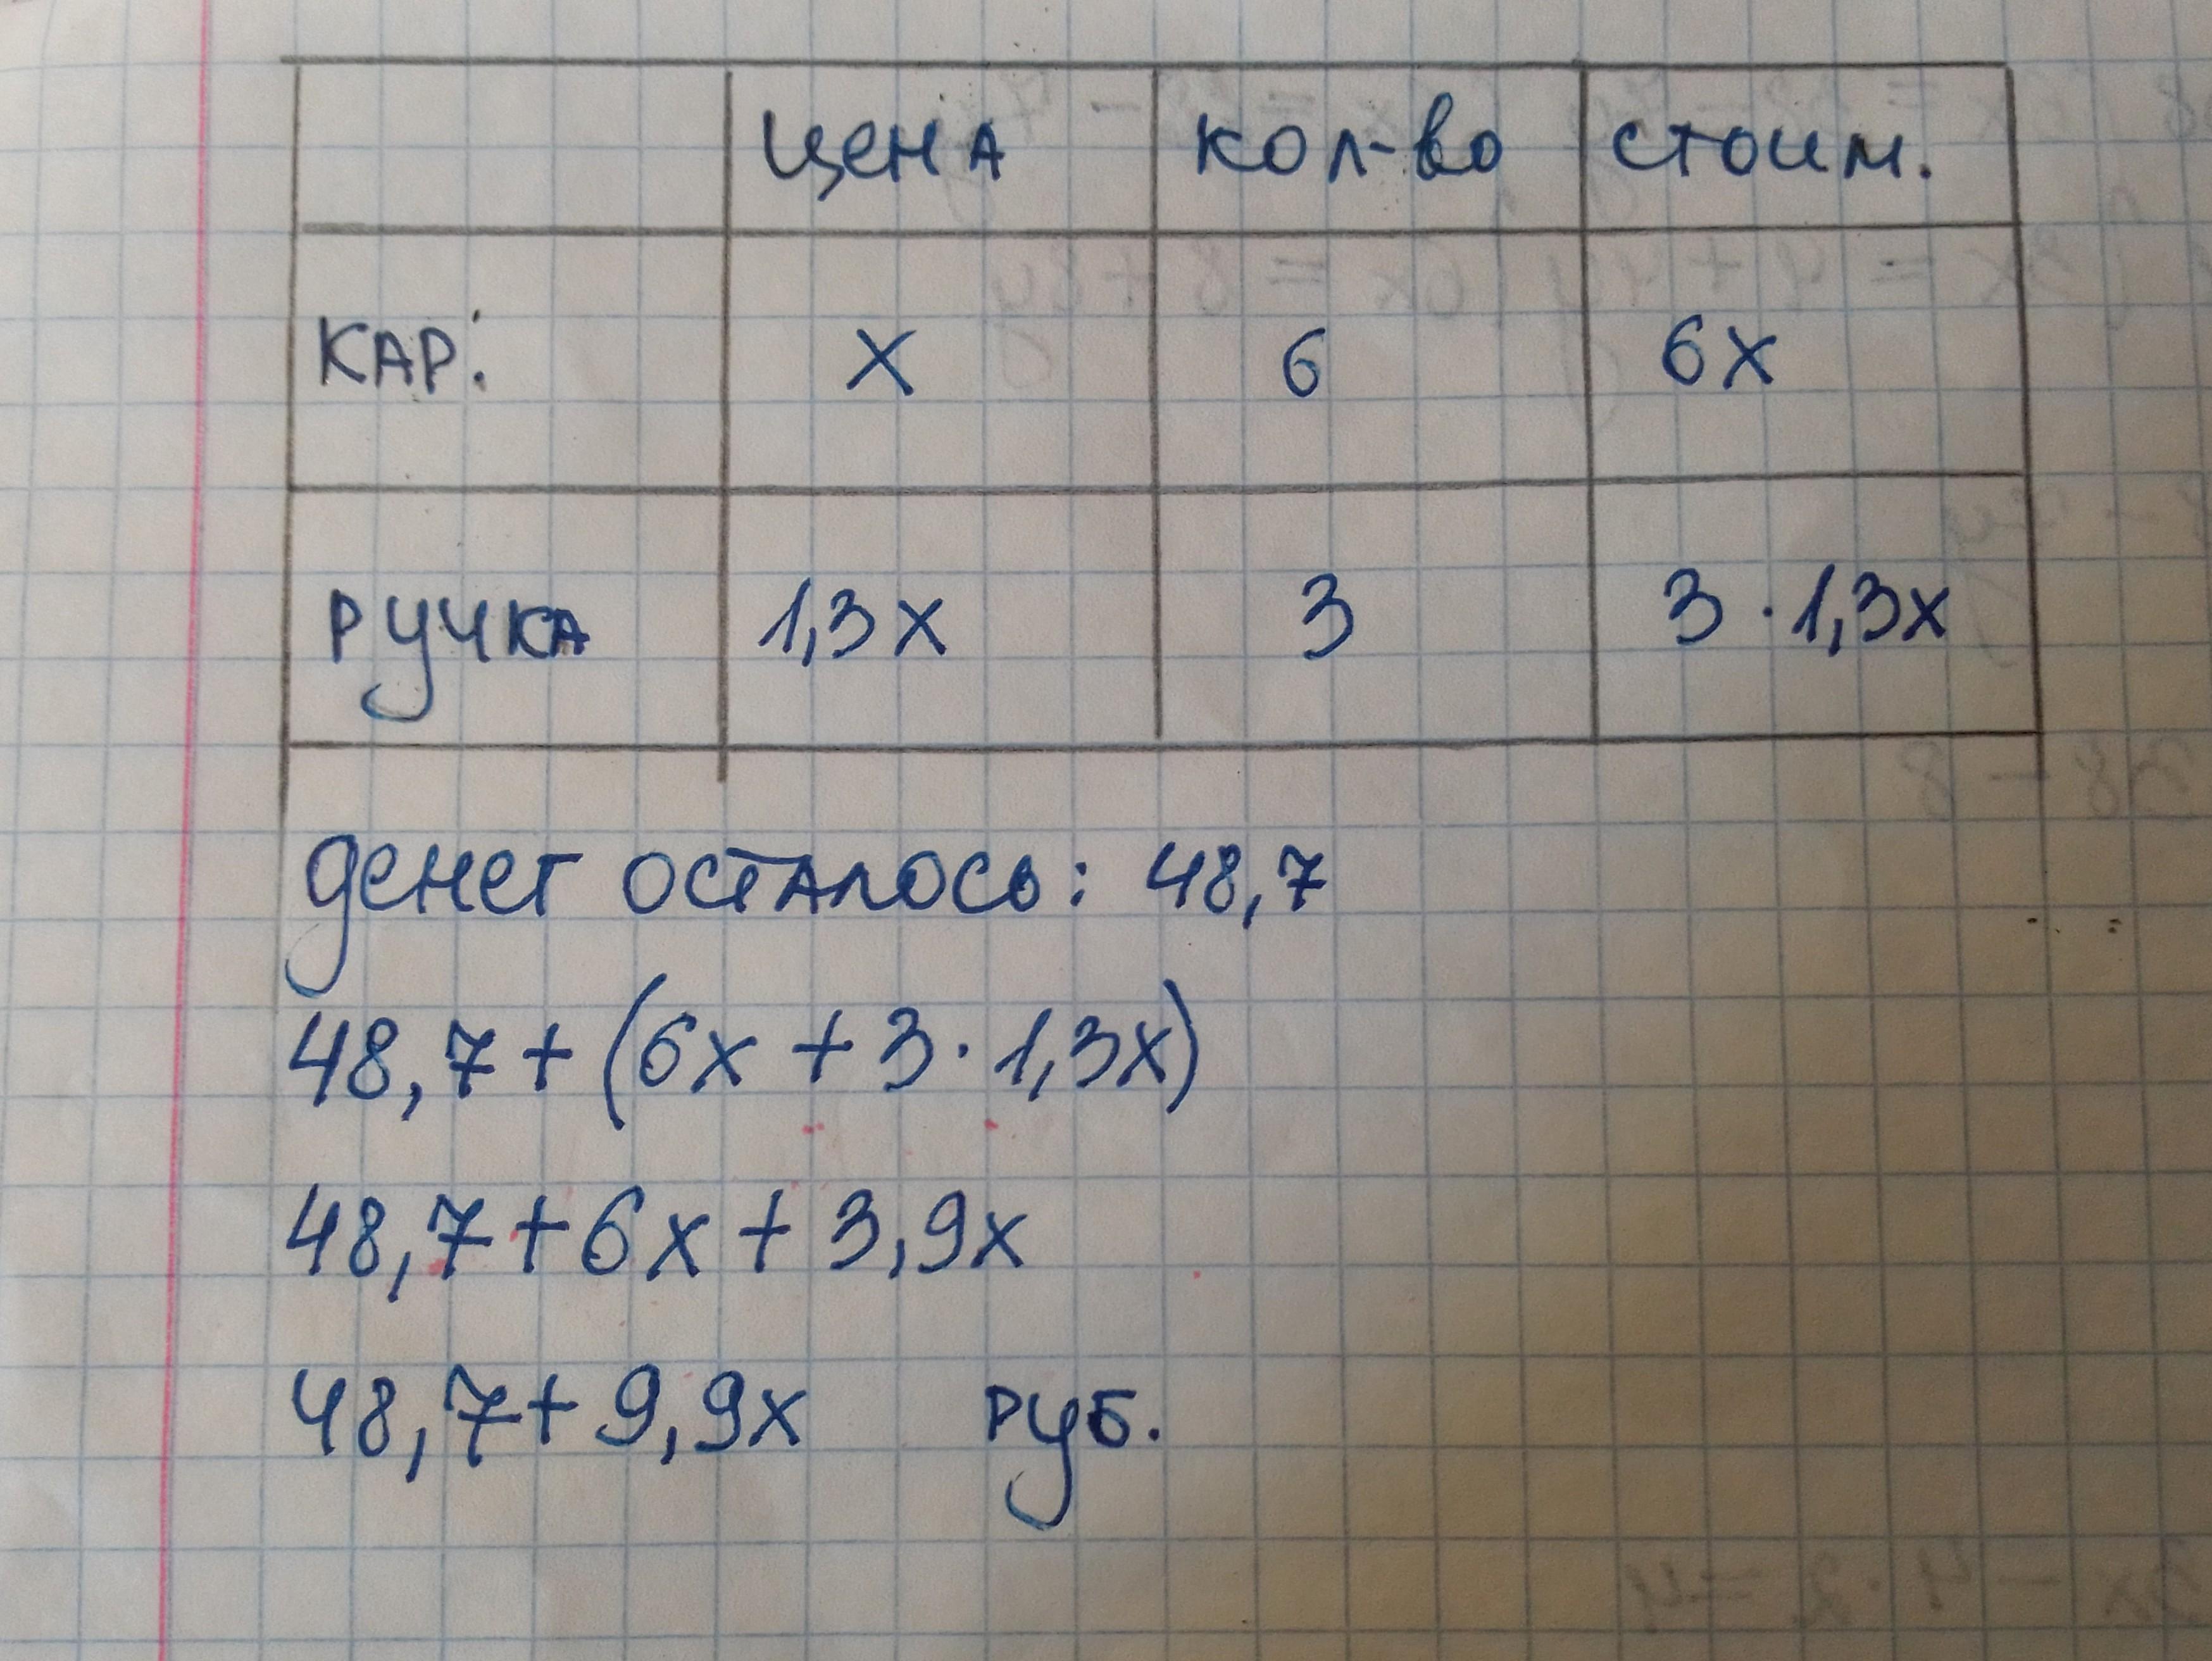 цена кол-во стоим.
кар. x 6 6x
ручка 1,3x 3 3 · 1,3x
денег осталось: 48,7
48,7 + (6x + 3 · 1,3x)
48,7 + 6x + 3,9x
48,7 + 9,9x руб.